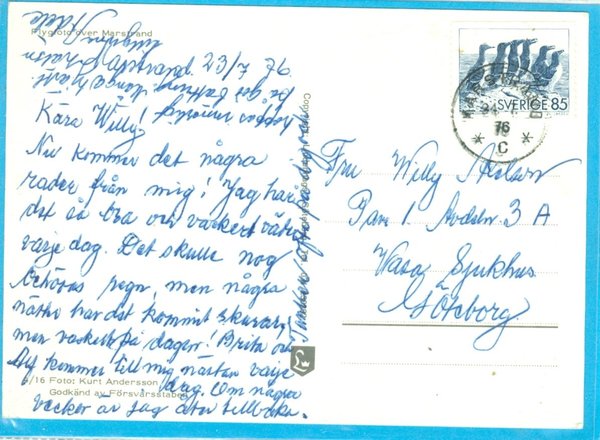 Flygfoto över Marstrand
Marstrand 23/7 76.
Kära Willy!
Nu kommer det några
rader från mig! Jag har
det så bra och vackert väder
varje dag. Det skulle nog
behövas regn, men några
nätter har det kommit skurar,
men vackert på dagen! Brita och
kommer till mig nästan varje
dag. Om några
veckor är jag åter tillbaka.
Tänker ofta på dig
6/16 Foto: Kurt Andersson
Godkänd av Försvarsstaben
SVERIGE 85
MARSTRAND
76
C
Fru Willy
Pav 1. Avdeln. 3 A
Vasa Sjukhus
Göteborg